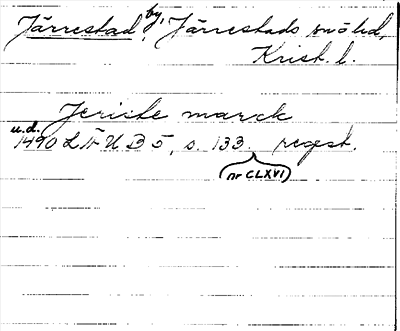 Järrestad by, Järrestads
Krist. l.
Jeriste marck
u.d.
1490 LÄUB 5, s. 133. regest.
nr CLXVI